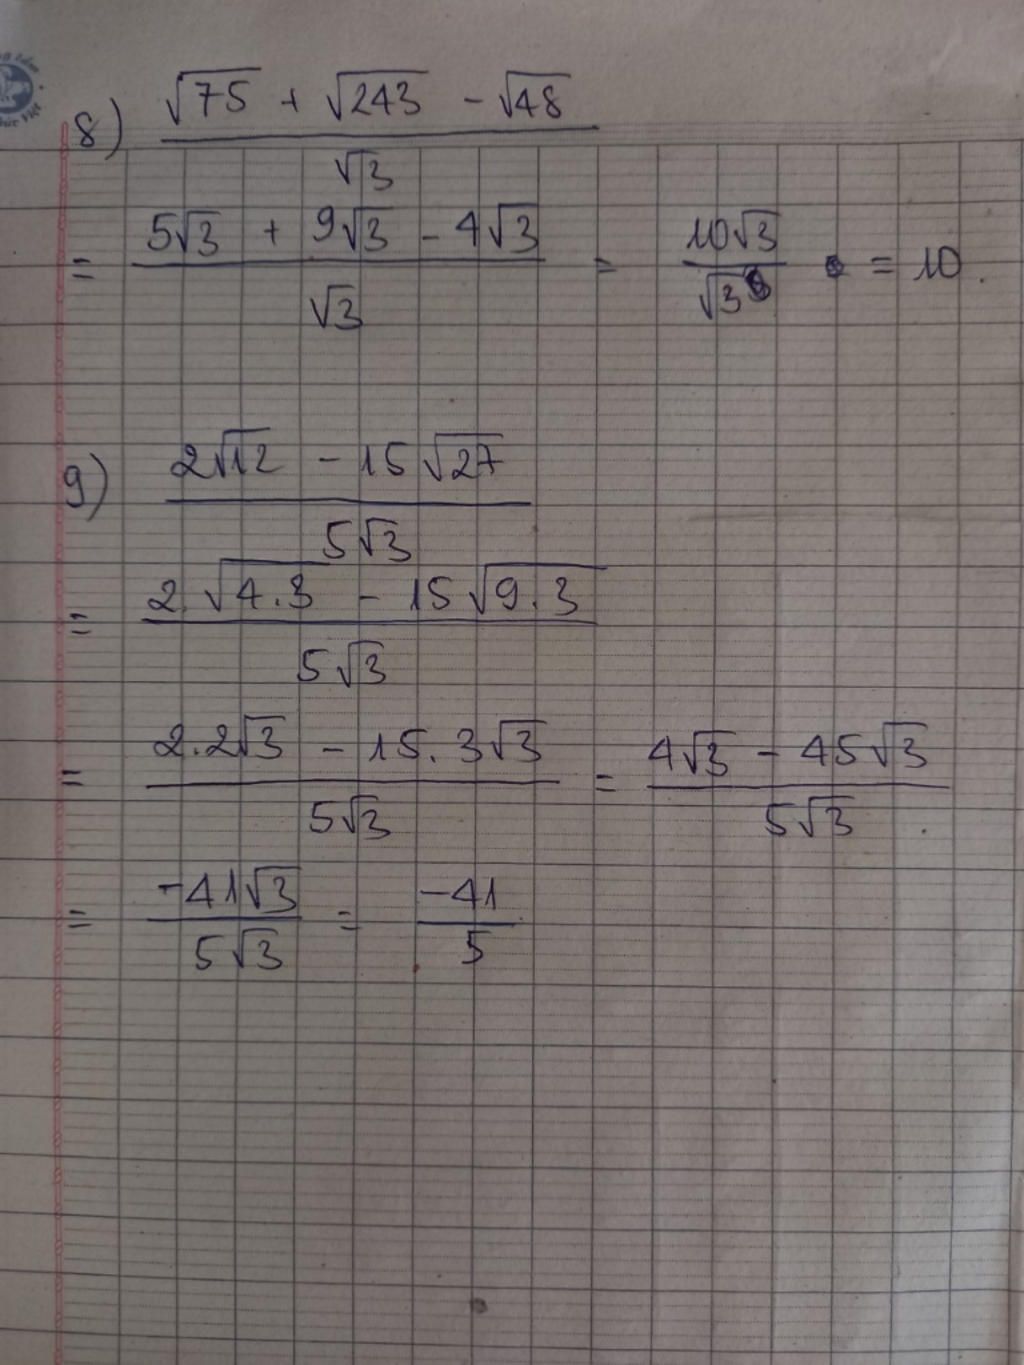 8) (√75 + √243 - √48) / √3
= (5√3 + 9√3 - 4√3) / √3 = 10√3 / √3 = 10.
9) (2√12 - 15√27) / 5√3
= (2.√4.3 - 15√9.3) / 5√3
= (2.2√3 - 15.3√3) / 5√3 = (4√3 - 45√3) / 5√3.
= -41√3 / 5√3 = -41 / 5